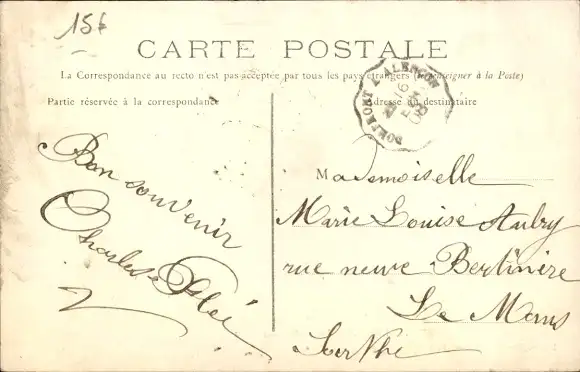 15f
CARTE POSTALE
La Correspondance au recto n'est pas acceptée par tous les pays étrangers (Renseigner à la Poste)
Partie réservée à la correspondance
Adresse du destinataire
DOMFRONT À ALENÇON
16
08
Bon souvenir
Charles
Mademoiselle
Marie Louise Aubry
rue neuve Bertinière
Le Mans
Sarthe